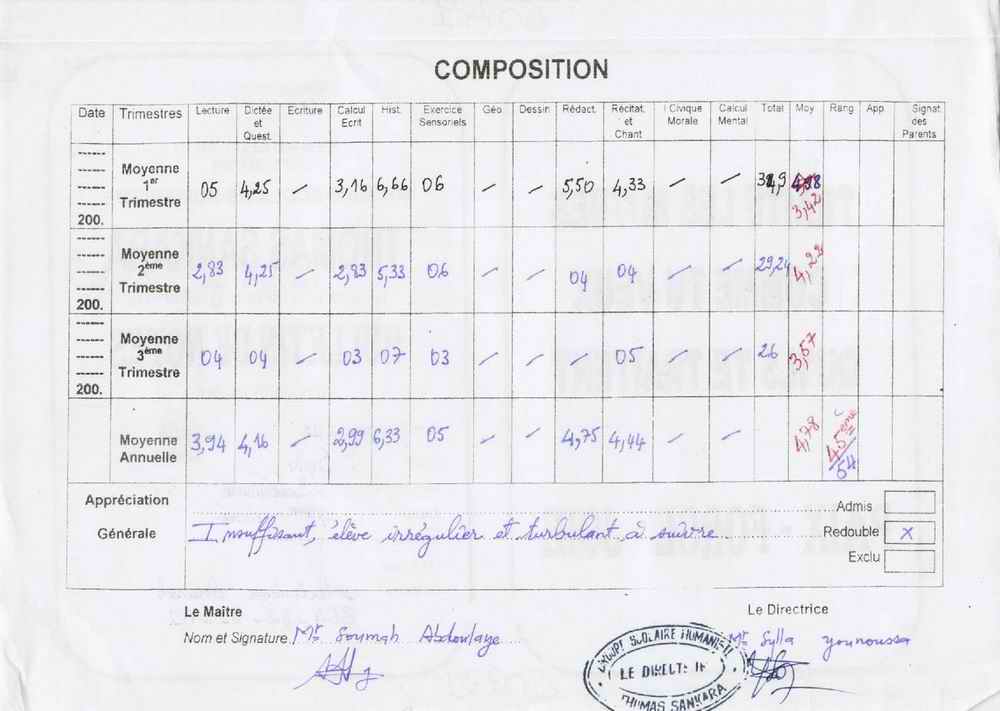 COMPOSITION
Date Trimestres Lecture Dictée et Quest. Ecriture Calcul Ecrit Hist. Exercice Sensoriels Géo Dessin Rédact. Récitat. et Chant I Civique Morale Calcul Mental Total Moy Rang App. Signat des Parents
Moyenne 1er Trimestre 200. 05 4,25 / 3,16 6,66 06 / / 5,50 4,33 / / 3,42
Moyenne 2ème Trimestre 200. 2,83 4,25 / 2,83 5,33 06 / / 04 04 / / 29,24 4,22
Moyenne 3ème Trimestre 200. 04 04 / 03 07 03 / / / 05 / / 26 3,57
Moyenne Annuelle 3,94 4,16 / 2,99 6,33 05 / / 4,75 4,44 / / 4,78 45ème/54
Appréciation Générale
Insuffisant, élève irrégulier et turbulant à suivre
Admis
Redouble x
Exclu
Le Maître
Nom et Signature. Mr Soumah Abdoulaye
Le Directrice
Mr Sylla Younoussa
GROUPE SCOLAIRE
LE DIRECTEUR
THOMAS SANKARA